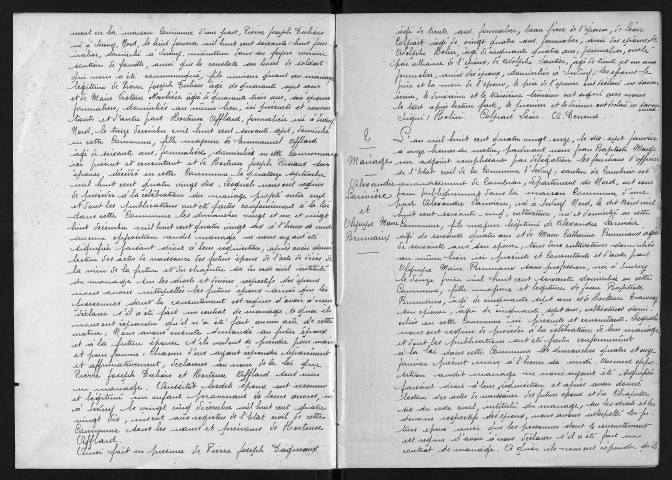 ment en la maison Commune d'une part, Pierre Joseph Dubois
né à Iwuy, Nord, le huit janvier mil huit cent soixante huit, jour-
nalier, domicilié à Iwuy, maintenu dans ses foyers comme
soutien de famille, ainsi que le constate un livret de soldat
qui nous a été communiqué, fils mineur quant au mariage
légitime de Pierre Joseph Dubois âgé de quarante sept ans
et de Marie Victoire âgée de quarante trois ans, son épouse
journaliers, domiciliés au même lieu, ici présents et consen-
tants et d'autre part Hortense Afflard, journalière née à Iwuy
Nord, le douze décembre mil huit cent soixante sept, domiciliée
en cette Commune, fille majeure de Emmanuel Afflard
âgé de soixante ans, journalier, domicilié en cette commune
ici présent et consentant et de Hortense Joseph son
épouse, décédée en cette Commune le quatorze septembre
mil huit cent quatre vingt dix, lesquels nous ont requis
de procéder à la célébration du mariage projeté entre eux
et dont les publications ont été faites conformément à la loi
dans cette Commune les dimanches vingt et un et vingt
huit décembre mil huit cent quatre vingt dix à l'heure de midi
aucune opposition audit mariage ne nous ayant été
signifiée faisant droit à leur réquisition, après avoir donné
lecture des actes de naissance des futurs époux de l'acte de décès de
la mère de la future et du chapitre six du code civil intitulé
du mariage sur les droits et devoirs respectifs des époux
nous avons interpellé les futurs époux ainsi que les
personnes dont le consentement est requis d'avoir à nous
déclarer s'il a été fait un contrat de mariage, à quoi ils
nous ont répondu qu'il n'a été fait aucun acte de cette
nature. Nous avons ensuite demandé au futur époux
et à la future épouse s'ils veulent se prendre pour mari
et pour femme : chacun d'eux ayant répondu séparément
et affirmativement, déclarons au nom de la loi que
Pierre Joseph Dubois et Hortense Afflard sont unis
en mariage. Aussitôt lesdits époux ont reconnu
et légitimé un enfant provenant de leurs œuvres, né
à Iwuy le vingt cinq décembre mil huit cent quatre
vingt dix, inscrit aux registres de l'état civil de cette
Commune sous les noms et prénoms de Hortense
Afflard
Ainsi fait en présence de Pierre Joseph
âgé de trente ans, journalier, beau frère de l'époux, de Léon
Colpart âgé de vingt quatre ans, journalier, ami des époux, de
Adolphe Holin, âgé de cinquante quatre ans, journalier, oncle
par alliance de l'époux, de Adolphe âgé de trente et un ans
journalier, ami des époux, domiciliés à Iwuy. Les époux, le
père et la mère de l'époux, le père de l'épouse ont déclaré ne savoir
signer, le deuxième et le troisième témoins ont signé avec nous
le tout après lecture faite, le premier et le dernier ont déclaré ne savoir
Signé : Holin. Colpart Léon. A. Denune
2
Mariage
Alexandre
Carrière
et
Olympe Marie
Brunniaux
L'an mil huit cent quatre vingt onze, le dix sept janvier
à onze heures du matin, pardevant nous Jean Baptiste
notre adjoint remplissant par délégation les fonctions d'officier
de l'Etat civil de la Commune d'Iwuy, canton de Cambrai est
arrondissement de Cambrai, département du Nord, ont com-
paru publiquement dans la maison Commune, d'une
part Alexandre Carrière, né à Iwuy, Nord, le dix août mil
huit cent soixante cinq, cultivateur, né et domicilié en cette
Commune, fils majeur légitime de Alexandre Carrière
âgé de soixante quatre ans et de Marie Catherine Brunniaux âgée
de soixante ans son épouse, tous deux cultivateurs domiciliés
au même lieu ici présents et consentants et d'autre part
Olympe Marie Brunniaux sans profession, née à Iwuy
le douze juin mil huit cent soixante domiciliée en cette
Commune, fille majeure et légitime de Jean Baptiste
Brunniaux, âgé de cinquante sept ans et de Hortense
son épouse, âgée de cinquante sept ans, cultivateurs domi-
ciliés en cette Commune ici présents et consentants. Lesquels
nous ont requis de procéder à la célébration de leur mariage
et dont les publications ont été faites conformément
à la loi dans cette Commune les dimanches quatre et onze
janvier présent mois à l'heure de midi. Aucune oppo-
sition audit mariage ne nous ayant été signifiée
faisant droit à leur réquisition et après avoir donné
lecture des actes de naissance des futurs époux et du Chapitre
six du code civil, intitulé du mariage, sur les droits et les
devoirs respectifs des époux, nous avons interpellé les fu-
turs époux ainsi que les personnes dont le consentement
est requis d'avoir à nous déclarer s'il a été fait un
contrat de mariage. A quoi ils nous ont répondu qu'il